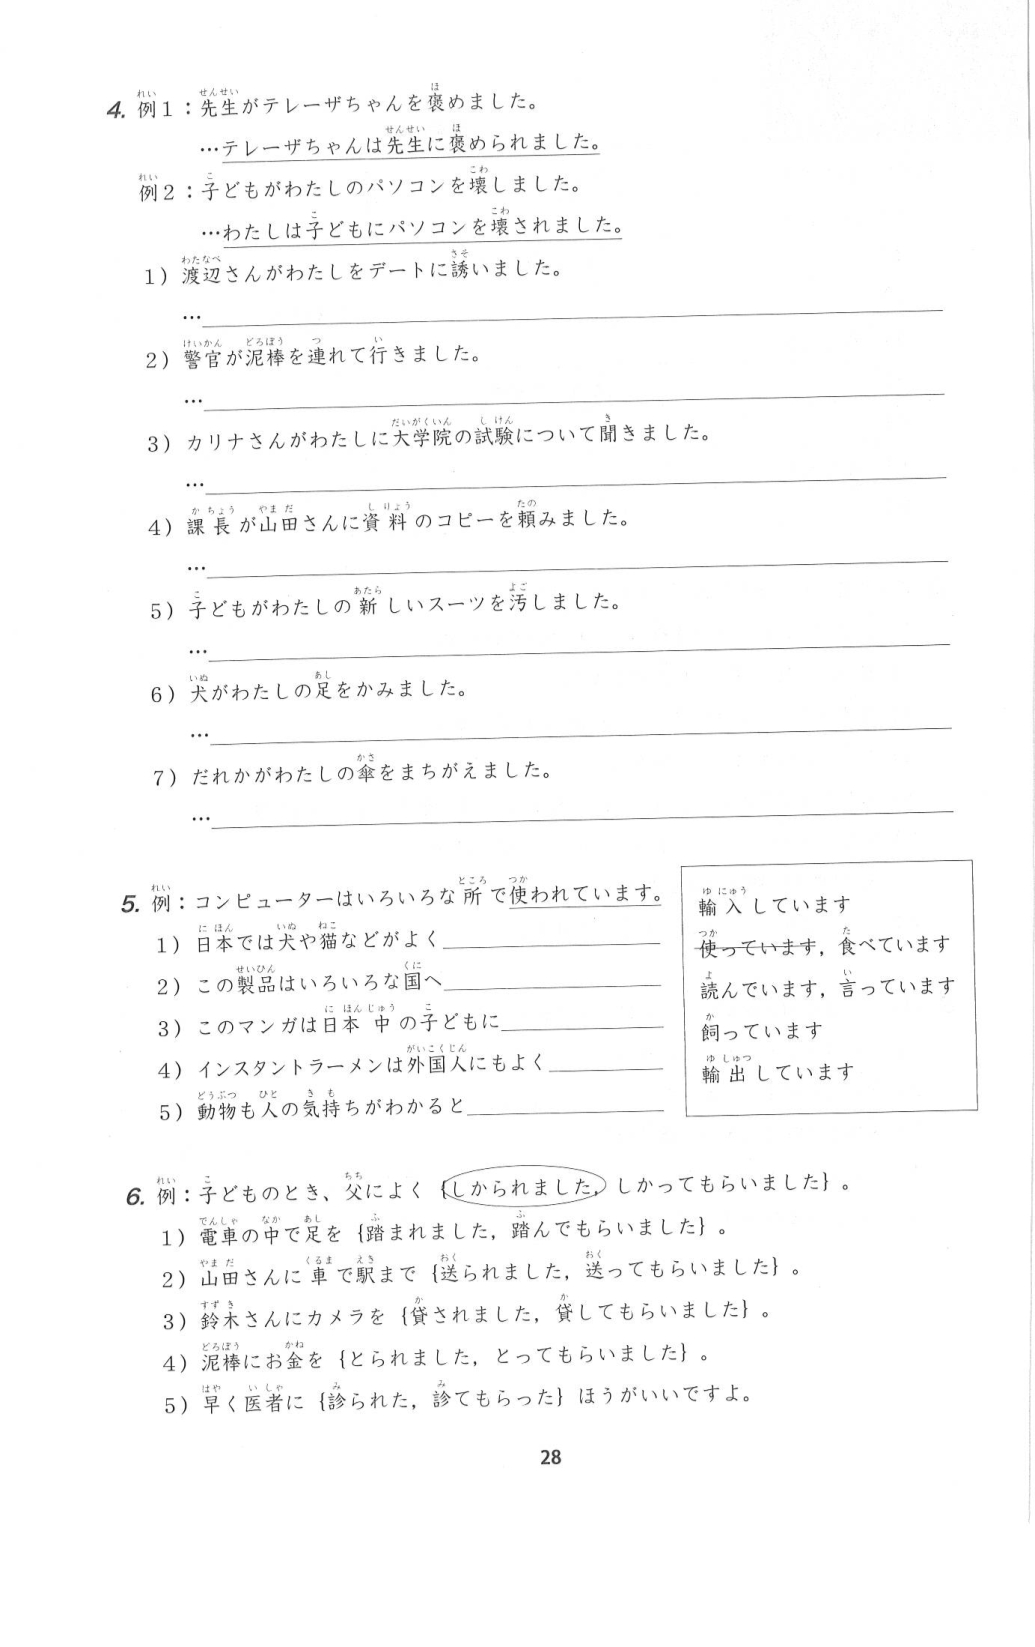 4. 例1：先生がテレーザちゃんを褒めました。
…テレーザちゃんは先生に褒められました。
例2：子どもがわたしのパソコンを壊しました。
…わたしは子どもにパソコンを壊されました。
1）渡辺さんがわたしをデートに誘いました。
…
2）警官が泥棒を連れて行きました。
…
3）カリナさんがわたしに大学院の試験について聞きました。
…
4）課長が山田さんに資料のコピーを頼みました。
…
5）子どもがわたしの新しいスーツを汚しました。
…
6）犬がわたしの足をかみました。
…
7）だれかがわたしの傘をまちがえました。
…
5. 例：コンピューターはいろいろな所で使われています。
1）日本では犬や猫などがよく
2）この製品はいろいろな国へ
3）このマンガは日本中の子どもに
4）インスタントラーメンは外国人にもよく
5）動物も人の気持ちがわかると
輸入しています
使っています，食べています
読んでいます，言っています
飼っています
輸出しています
6. 例：子どものとき、父によく｛しかられました，しかってもらいました｝。
1）電車の中で足を｛踏まれました，踏んでもらいました｝。
2）山田さんに車で駅まで｛送られました，送ってもらいました｝。
3）鈴木さんにカメラを｛貸されました，貸してもらいました｝。
4）泥棒にお金を｛とられました，とってもらいました｝。
5）早く医者に｛診られた，診てもらった｝ほうがいいですよ。
28